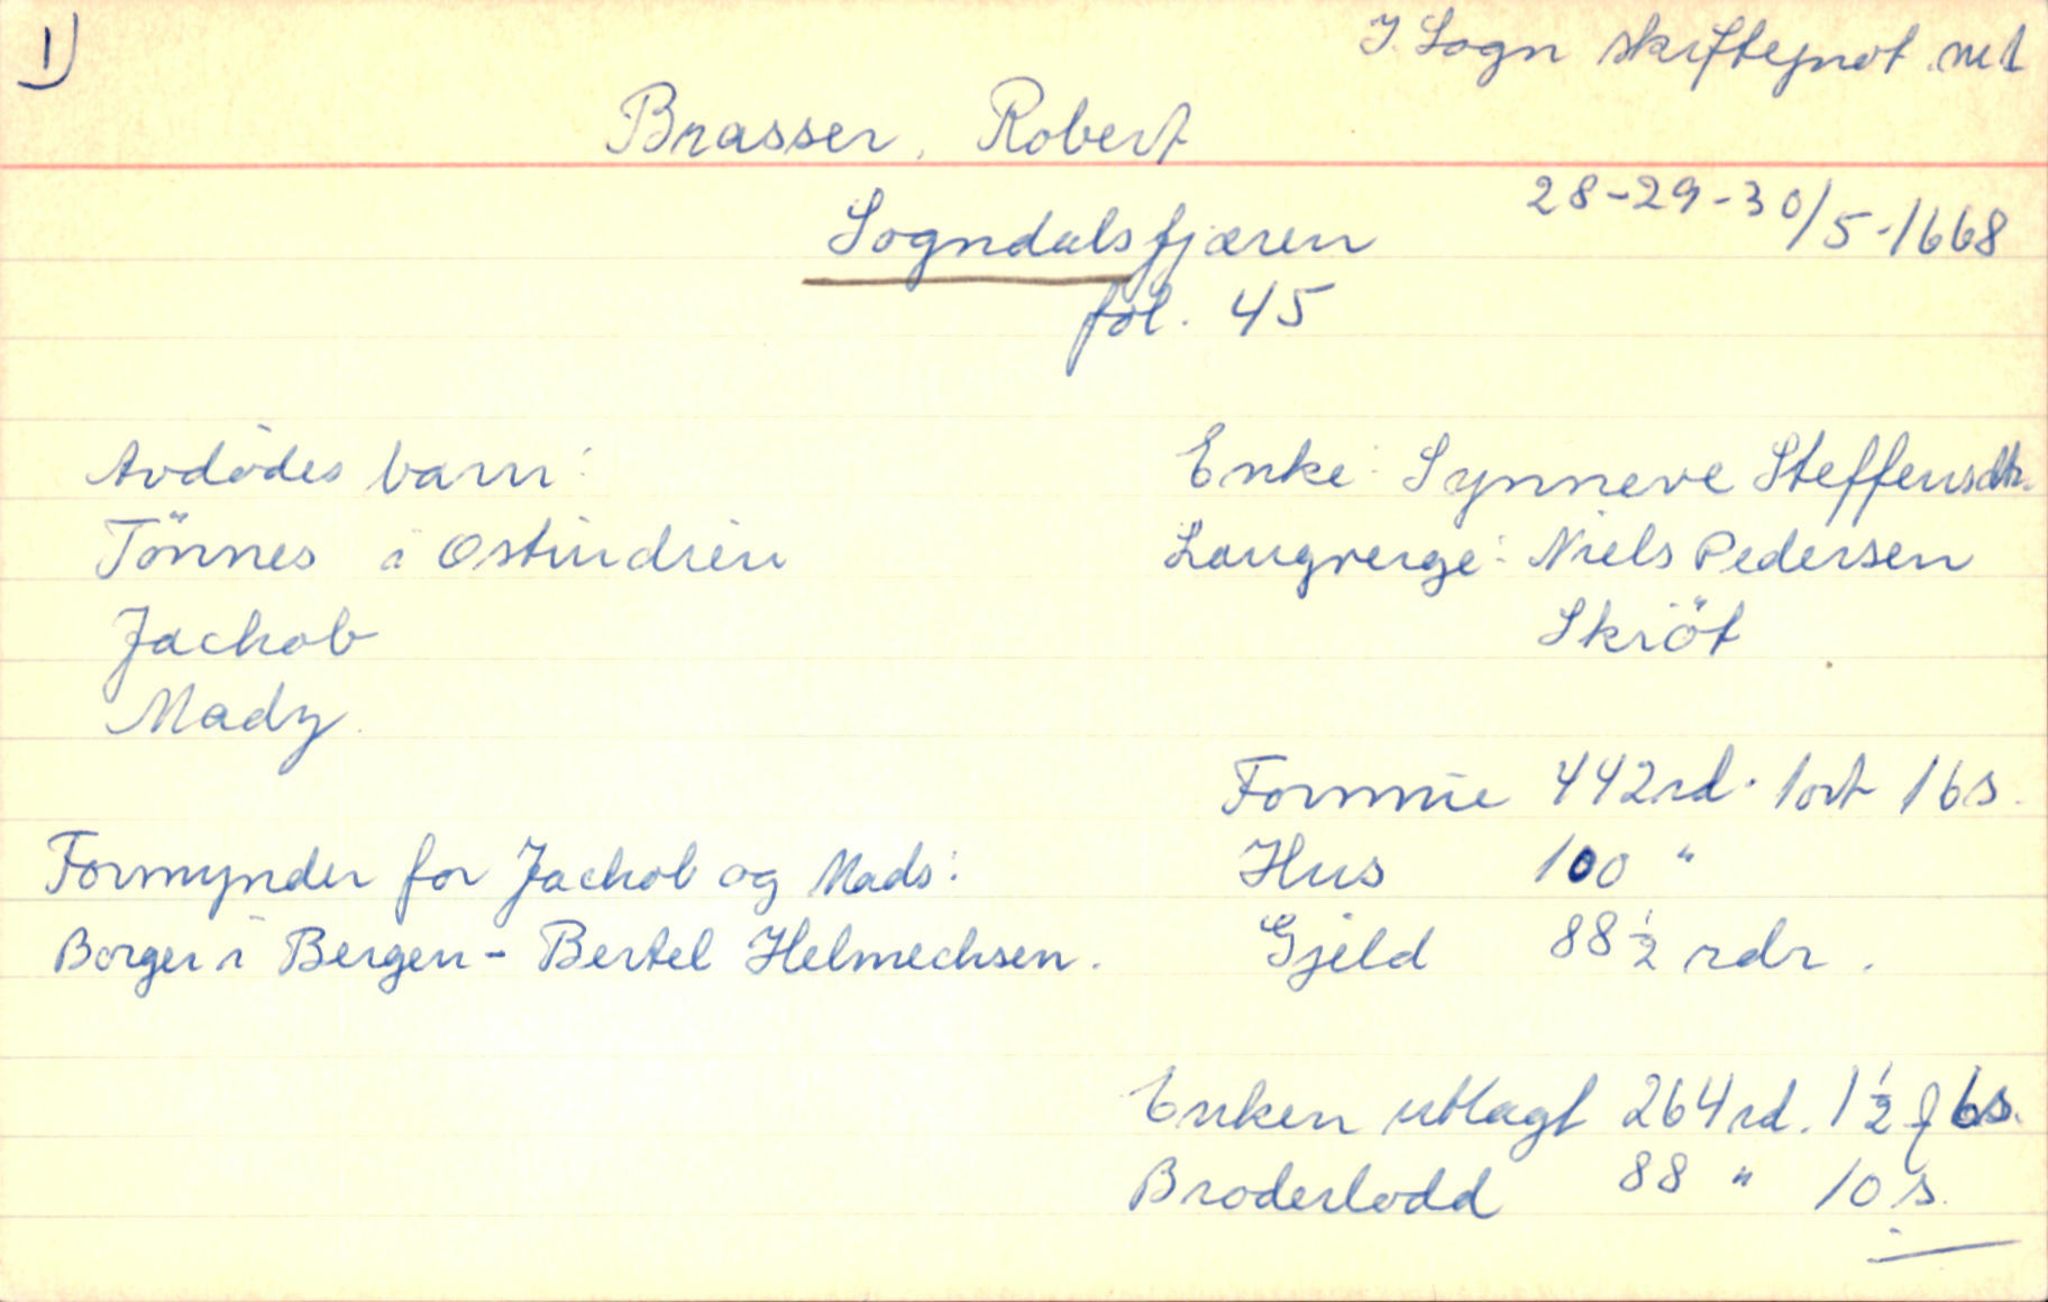 1)
Y. Sogn skifteprot. nr 1
Brasser, Robert
28-29-30/5-1668
Sogndalsfjæren
fol. 45
Avdødes barn:
Tönnes i Ostindien
Jachob
Mady
Enke: Synneve Steffensdtr.
Laugverge: Niels Pedersen
Skiöt
Formue 442 rd. 1 ort 16 s.
Hus 100 "
Gjeld 88 ½ rdr.
Formynder for Jachob og Mads:
Borger i Bergen - Bertel Helmechsen.
Enken utlagt 264 rd. 1 ½ 6 s.
Broderlodd 88 " 10 s.